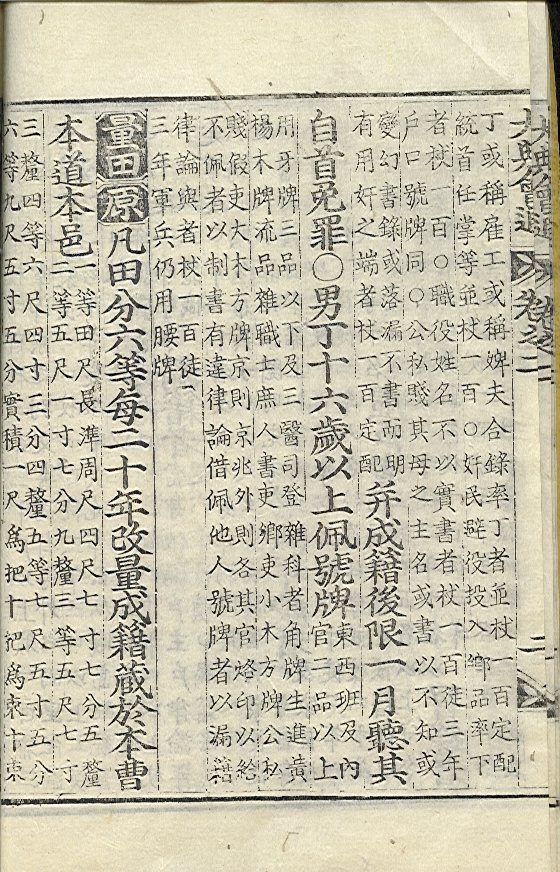 大典會通 卷之二 二
丁或稱雇工或稱婢夫合錄率丁者並杖一百定配
統首任掌等並杖一百○奸民避役投入鄉品率下
者杖一百○職役姓名不以實書者杖一百徒三年
戶口號牌同○公私賤其母之主名或書以不知或
變幻書錄或落漏不書而明
有用奸之端者杖一百定配
并成籍後限一月聽其
自首免罪○男丁十六歲以上佩號牌
東西班及內
官二品以上
用牙牌三品以下及三醫司登雜科者角牌生進黃
楊木牌流品雜職士庶人書吏鄉吏小木方牌公私
賤假吏大木方牌京則京兆外則各其官烙印以給
不佩者以制書有違律論借佩他人號牌者以漏籍
律論與者杖一百徒
三年軍兵仍用腰牌
量田 原 凡田分六等每二十年改量成籍藏於本曹
本道本邑
一等田尺長準周尺四尺七寸七分五釐
二等五尺一寸七分九釐三等五尺七寸
三釐四等六尺四寸三分四釐五等七尺五寸五分
六等九尺五寸五分實積一尺爲把十把爲束十束